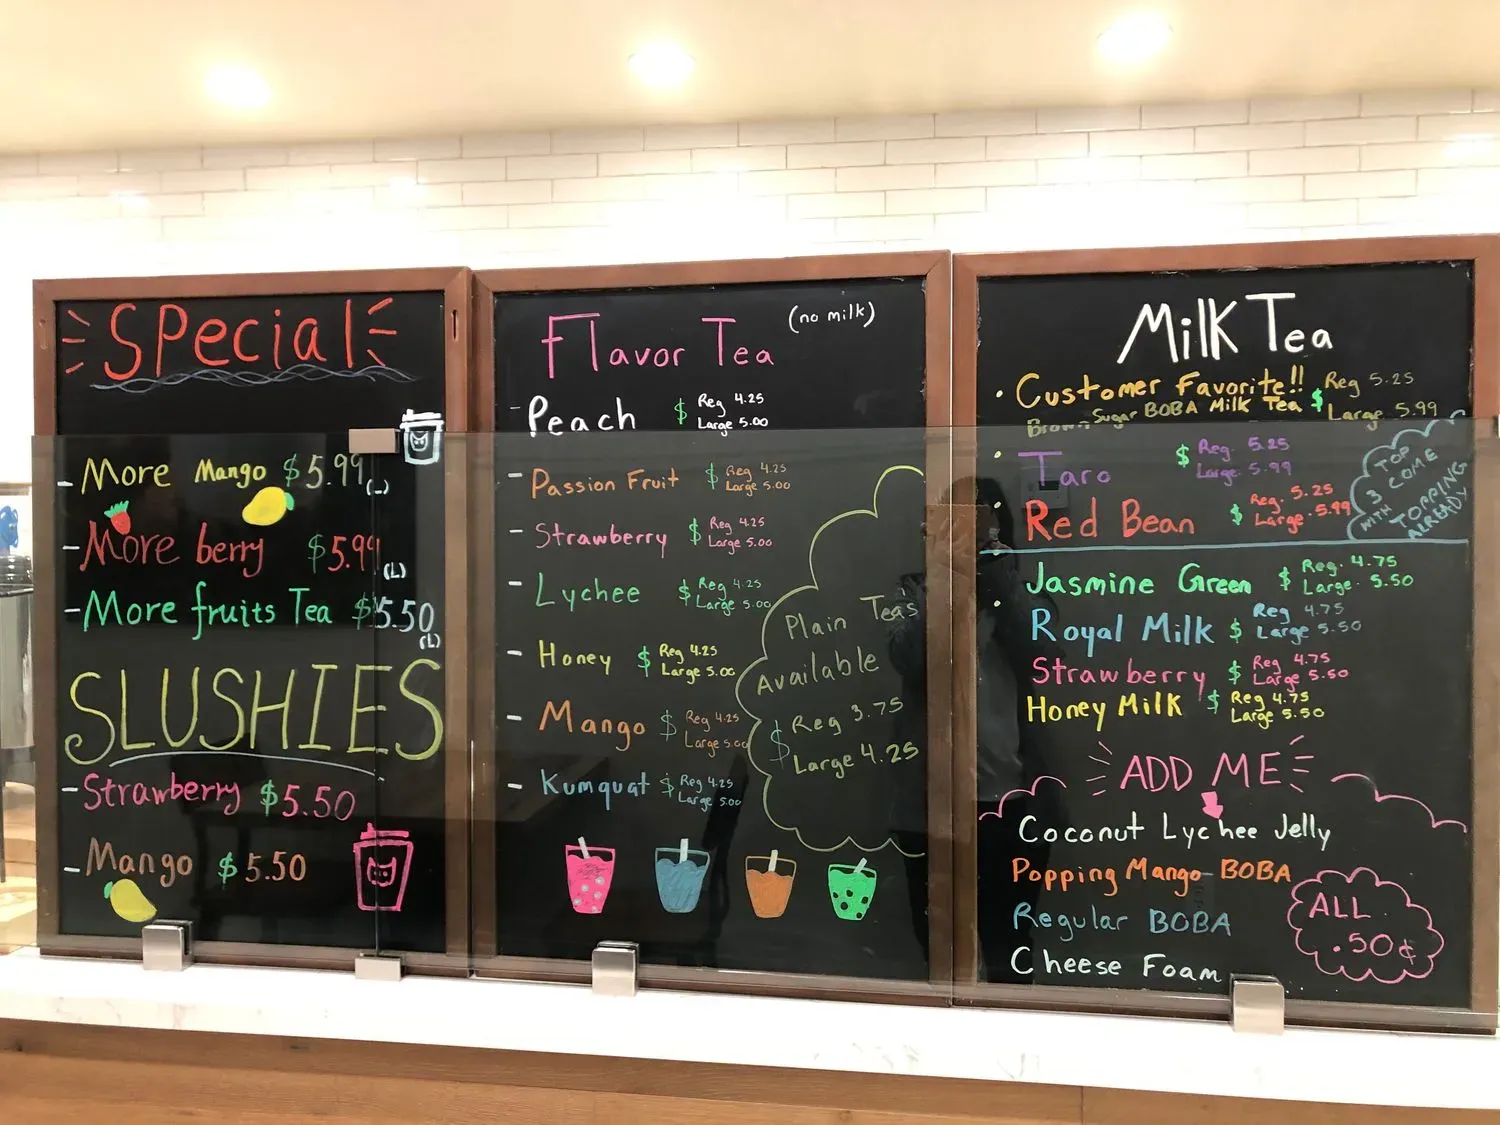 Special
- More Mango $5.99 (L)
- More berry $5.99 (L)
- More fruits Tea $5.50 (L)
SLUSHIES
- Strawberry $5.50
- Mango $5.50
Flavor Tea (no milk)
- Peach $ Reg 4.25
Large 5.00
- Passion Fruit $ Reg 4.25
Large 5.00
- Strawberry $ Reg 4.25
Large 5.00
- Lychee $ Reg 4.25
Large 5.00
- Honey $ Reg 4.25
Large 5.00
- Mango $ Reg 4.25
Large 5.00
- Kumquat $ Reg 4.25
Large 5.00
Plain Teas
Available
$ Reg 3.75
Large 4.25
Milk Tea
• Customer Favorite!! $ Reg 5.25
Brown Sugar BOBA Milk Tea Large 5.99
• Taro $ Reg. 5.25
Large 5.99
• Red Bean $ Reg. 5.25
Large 5.99
TOP
3 COME
WITH TOPPING
ALREADY
• Jasmine Green $ Reg. 4.75
Large 5.50
• Royal Milk $ Reg 4.75
Large 5.50
Strawberry $ Reg 4.75
Large 5.50
Honey Milk $ Reg 4.75
Large 5.50
ADD ME
Coconut Lychee Jelly
Popping Mango BOBA
Regular BOBA
Cheese Foam
ALL
.50¢